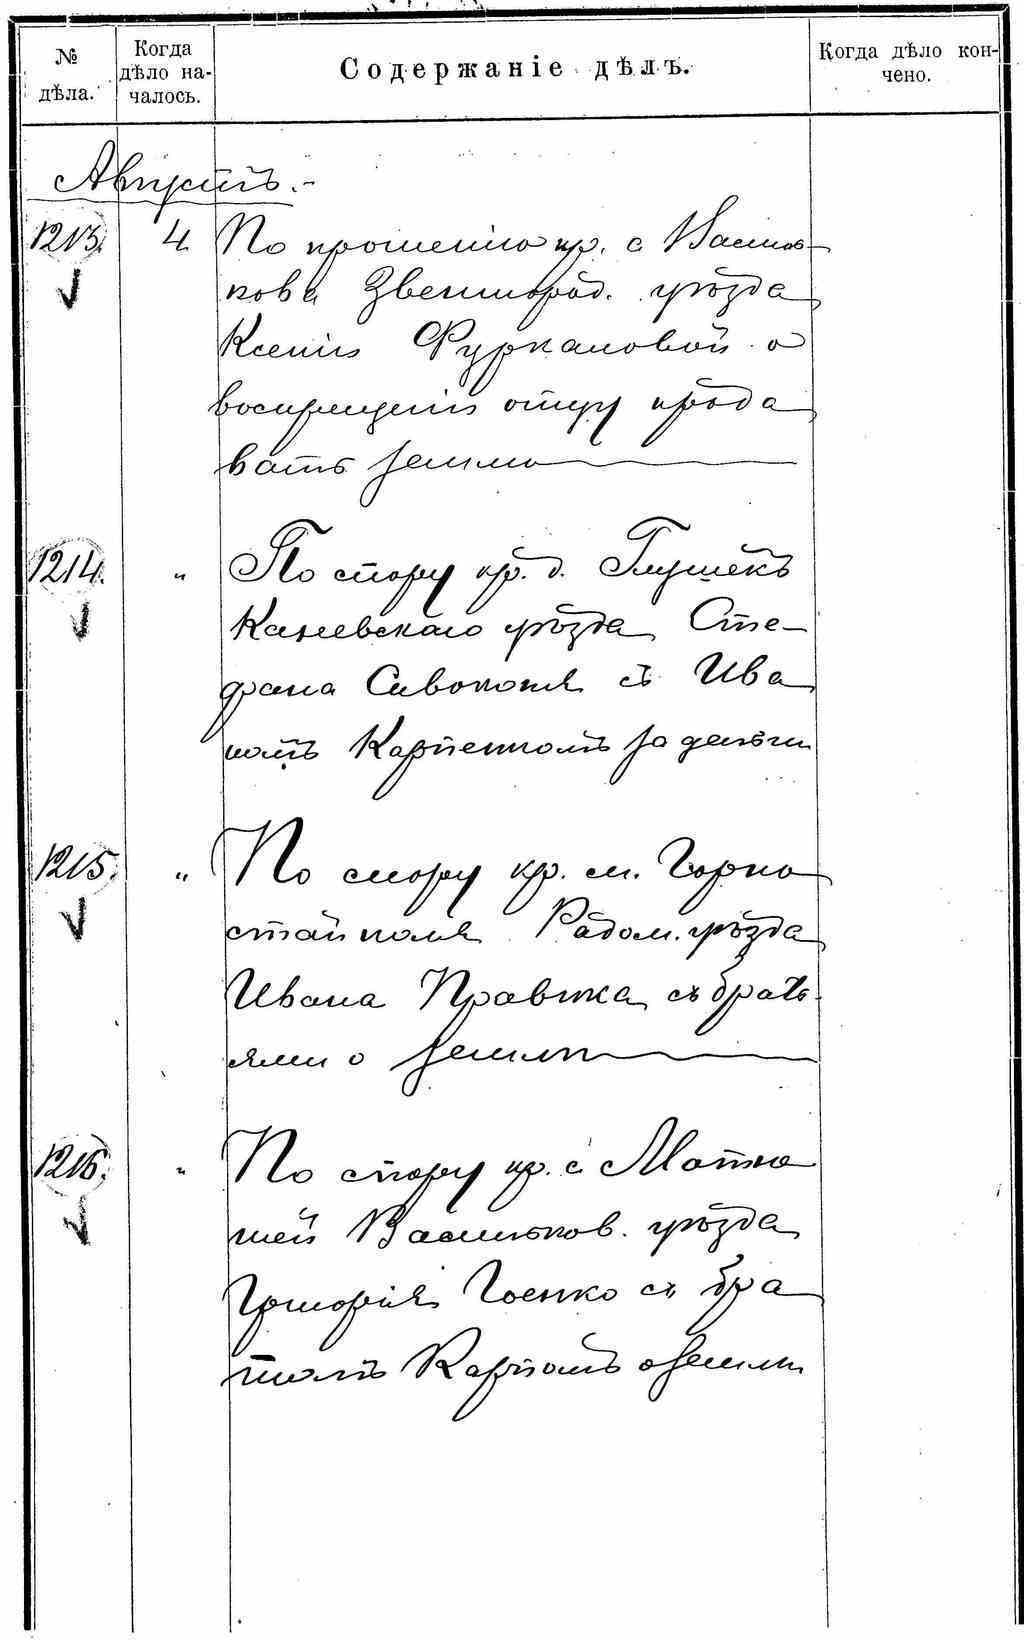 № дѣла.
Когда дѣло на-
чалось.
Содержаніе дѣлъ.
Когда дѣло кон-
чено.
Августъ.-
1213. 4 По прошенію кр. с Василь-
кова Звенигород. уѣзда
Ксеніи Фуркаловой о
воспрещеніи отцу прода
вать землю
1214. " По спору кр. д. Глушекъ
Каневскаго уѣзда Сте-
фана Сивоконя съ Ива
номъ Карпенкомъ за деньги
1215. " По спору кр. м. Горно
стайполя Радом. уѣзда
Ивана Правика съ брать-
ями о земли
1216. " По спору кр. с Матю
шей Васильков. уѣзда
Григорія Гоенко съ бра
томъ Карпомъ о земли